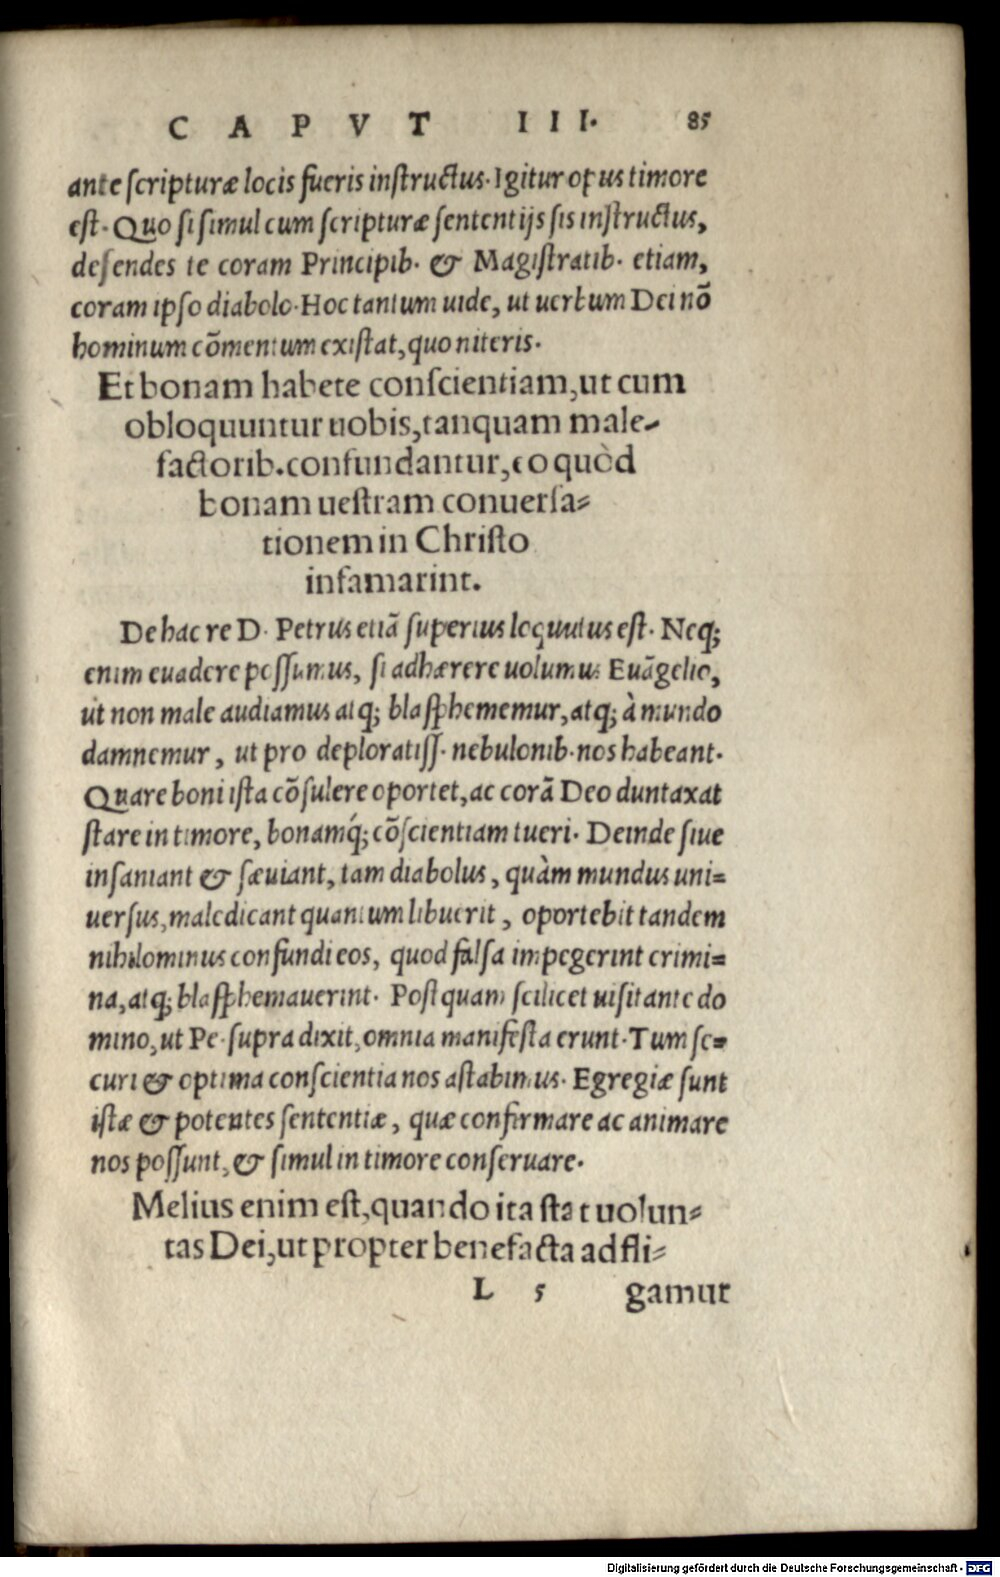 CAPVT III. 85
ante scripturæ locis fueris instructus. Igitur opus timore
est. Quo si simul cum scripturæ sententijs sis instructus,
defendes te coram Principib. & Magistratib. etiam,
coram ipso diabolo. Hoc tantum uide, ut uerbum Dei nõ
hominum cõmentum existat, quo niteris.
Et bonam habete conscientiam, ut cum
obloquuntur uobis, tanquam male-
factorib. confundantur, eo quòd
bonam uestram conuersa-
tionem in Christo
infamarint.
De hac re D. Petrus etiã superius loquutus est. Neq;
enim euadere possumus, si adhærere uolumus Euãgelio,
ut non male audiamus atq; blasphememur, atq; à mundo
damnemur, ut pro deploratiss. nebulonib. nos habeant.
Quare boni ista cõsulere oportet, ac corã Deo duntaxat
stare in timore, bonamq́; cõscientiam tueri. Deinde siue
insaniant & sæuiant, tam diabolus, quàm mundus uni-
uersus, maledicant quantum libuerit, oportebit tandem
nihilominus confundi eos, quod falsa impegerint crimi-
na, atq; blasphemauerint. Postquam scilicet uisitante do
mino, ut Pe. supra dixit, omnia manifesta erunt. Tum se-
curi & optima conscientia nos astabimus. Egregiæ sunt
istæ & potentes sententiæ, quæ confirmare ac animare
nos possunt, & simul in timore conseruare.
Melius enim est, quando ita stat uolun-
tas Dei, ut propter benefacta adfli-
L 5 gamur
Digitalisierung gefördert durch die Deutsche Forschungsgemeinschaft - DFG